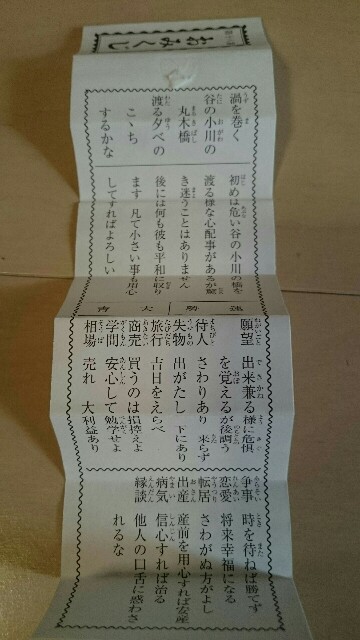 おみくじ
渦を巻く
谷の小川の
丸木橋
渡る夕べの
こゝち
するかな
初めは危い谷の小川の橋を
渡る様な心配事があるが驚
き迷うことはありません
後には何も彼も平和に収り
ます 凡て小さい事も用心
してすればよろしい
運勢
願望 出来兼る様に危惧
を覚えるが後調う
待人 さわりあり 来らず
失物 出がたし 下にあり
旅行 吉日をえらべ
商売 買うのは損控えよ
学問 安心して勉学せよ
相場 売れ 大利益あり
争事 時を待ねば勝てず
恋愛 将来幸福になる
転居 さわがぬ方がよし
出産 産前を用心すれば安産
病気 信心すれば治る
縁談 他人の口舌に惑わさ
れるな